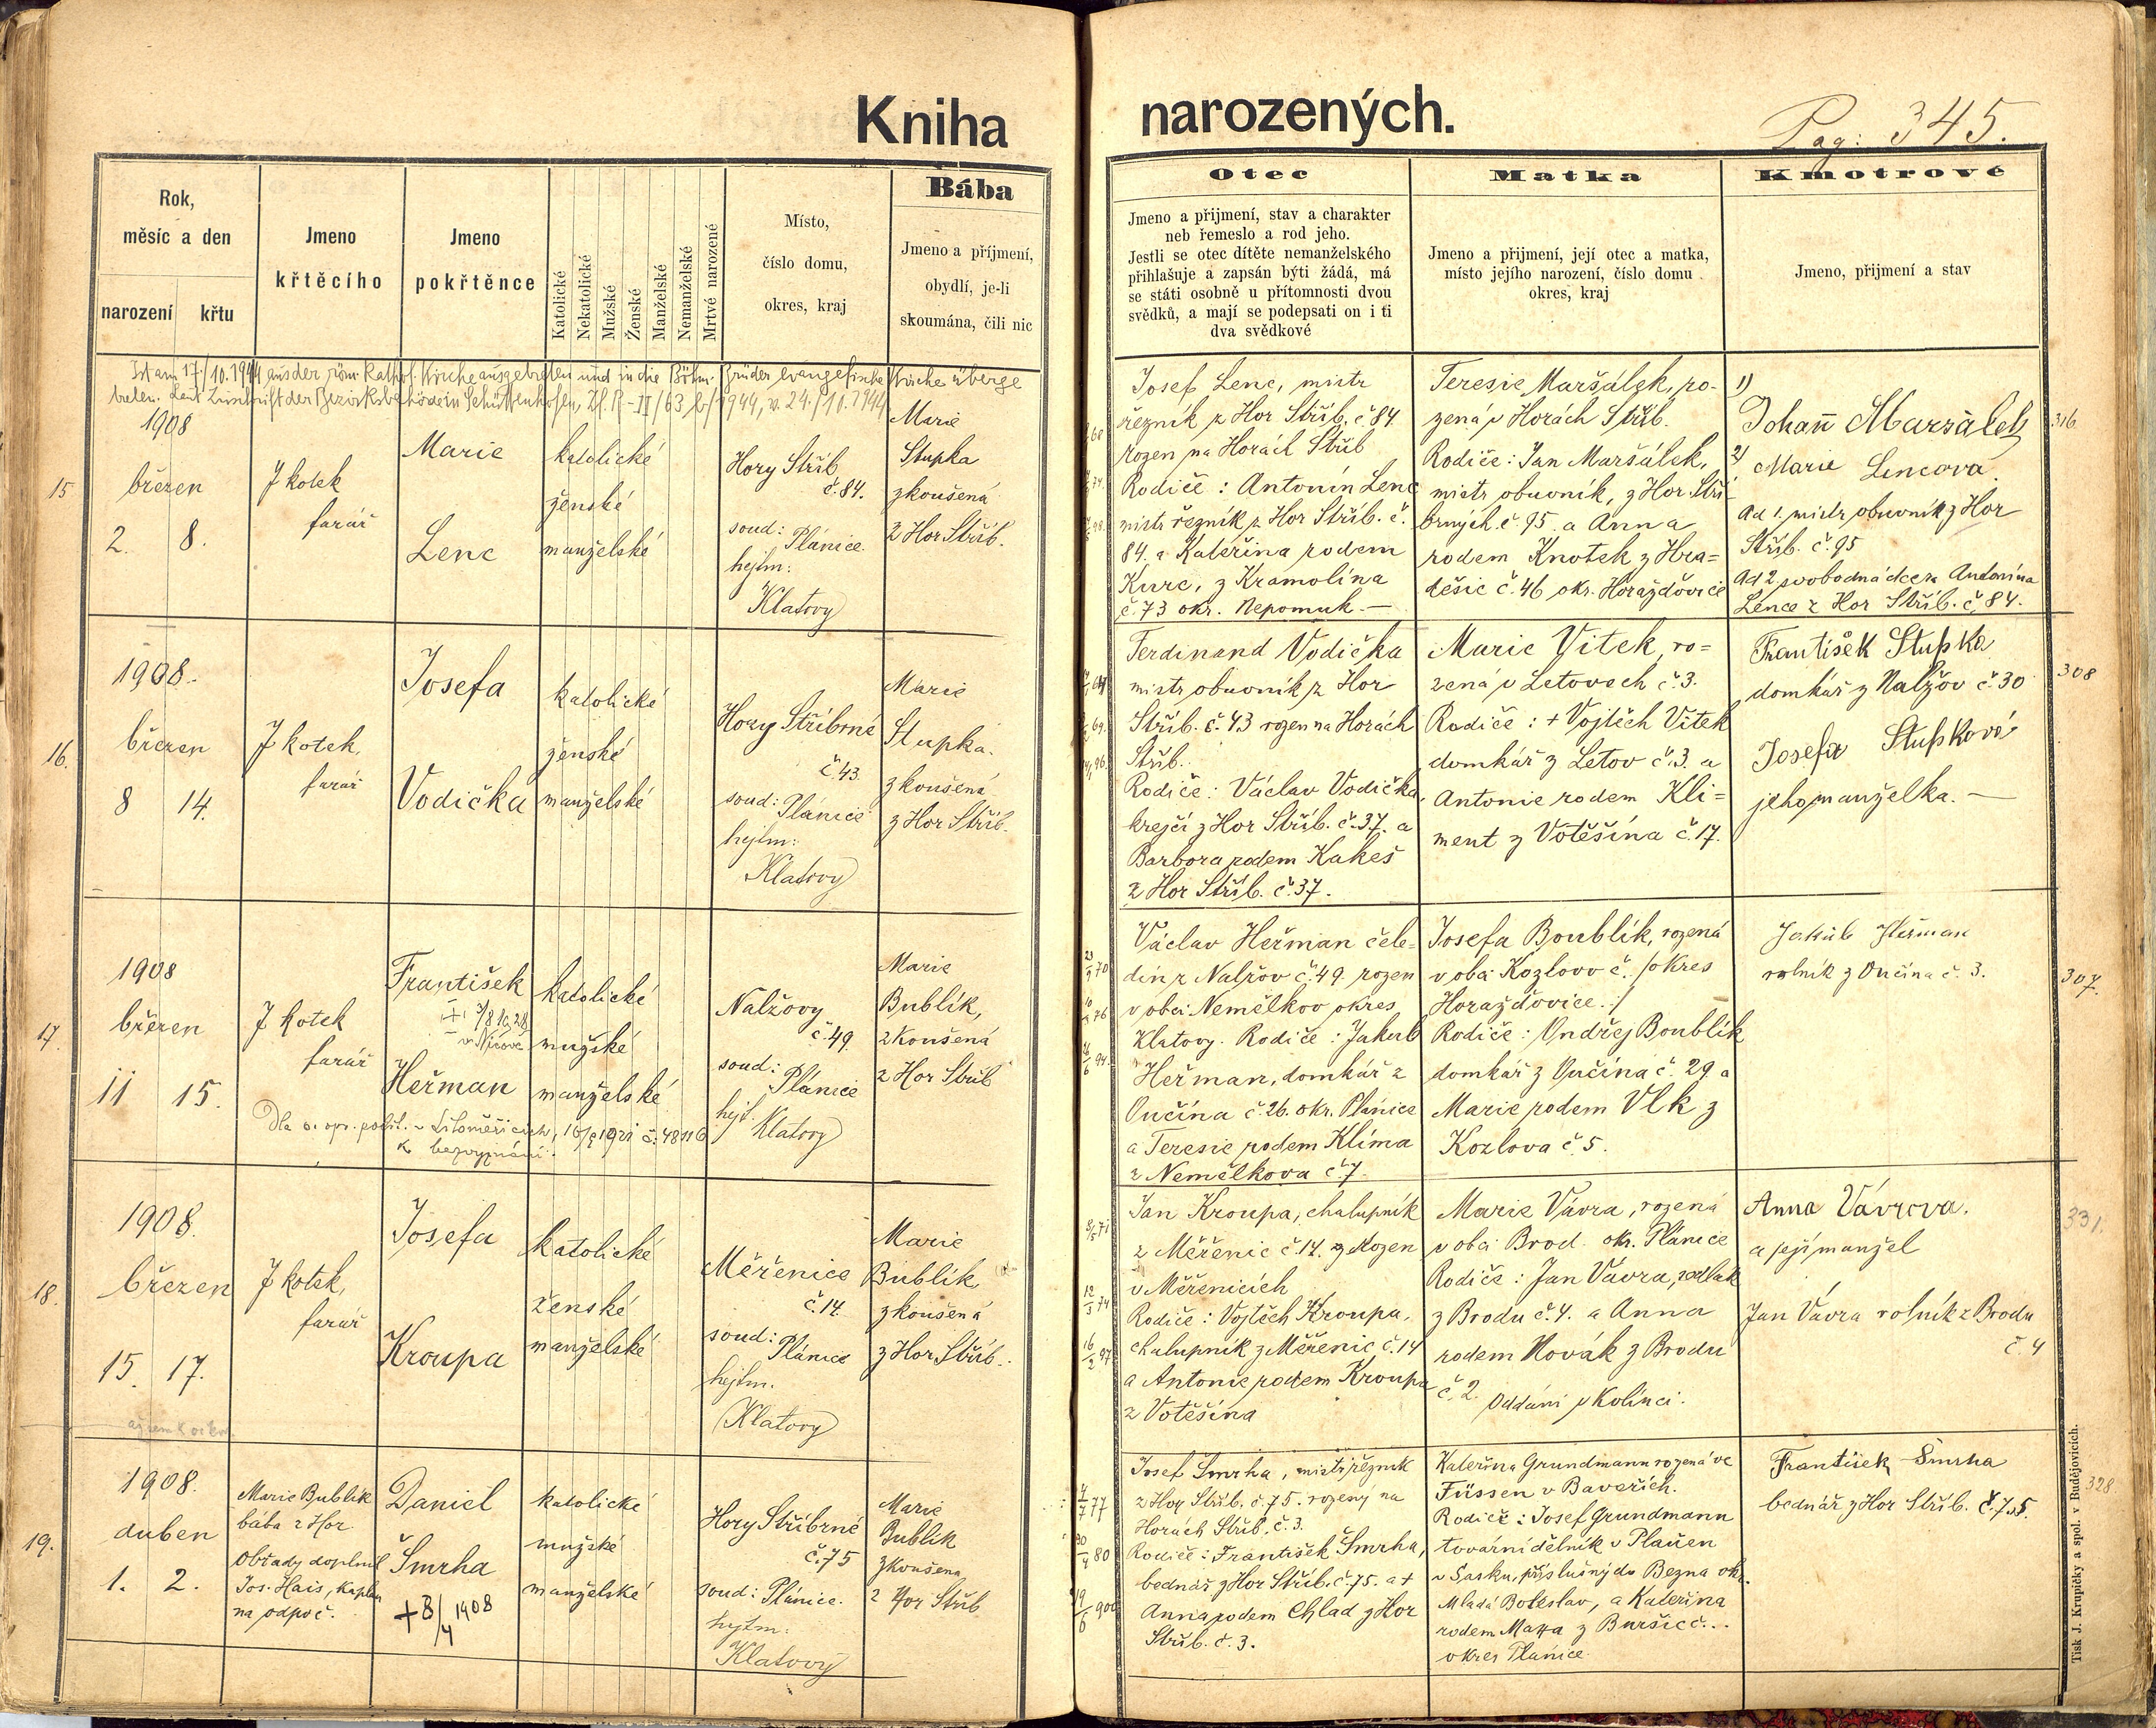 Kniha
narozených.
Pag: 345.
Rok,
měsíc a den
narození
křtu
Jmeno
křtěcího
Jmeno
pokřtěnce
Katolické
Nekatolické
Mužské
Ženské
Manželské
Nemanželské
Mrtvé narozené
Místo,
číslo domu,
okres, kraj
Bába
Jmeno a příjmení,
obydlí, je-li
skoumána, čili nic
Otec
Jmeno a přijmení, stav a charakter
neb řemeslo a rod jeho.
Jestli se otec dítěte nemanželského
přihlašuje a zapsán býti žádá, má
se státi osobně u přítomnosti dvou
svědků, a mají se podepsati on i ti
dva svědkové
Matka
Jmeno a přijmení, její otec a matka,
místo jejího narození, číslo domu
okres, kraj
Kmotrové
Jmeno, přijmení a stav
Ist am 17./10.1944 aus der röm. Kathol. Kirche ausgetreten und in die Böhm. Brüder evangelische Kirche überge
treten. Laut Zuschrift der Bezirksbehörde in Schüttenhofen, Zl. R-II/63 b/1944, v. 24./10.1944
15
1908
březen
2. 8.
J kotek
farář
Marie
Lenc
katolické
ženské
manželské
Hory Stříb.
č. 84.
soud: Plánice.
hejtm:
Klatovy
Marie
Stupka
zkoušená
z Hor Stříb.
Josef Lenc, mistr
řezník z Hor Stříb. č 84.
rozen na Horách Stříb
Rodiče: Antonín Lenc
mistr řezník z Hor Stříb. č.
84. a Kateřina rodem
Kurc, z Kramolína
č. 73 okr. Nepomuk. —
Teresie Maršálek, ro-
zená v Horách Stříb.
Rodiče: Jan Maršálek,
mistr obuvník, z Hor Stří
brných. č 95. a Anna
rodem Knotek z Hra=
dešic č. 46 okr. Horažďovice
1)
Johann Marzálek
2) Marie Lencova.
Ad 1. mistr obuvník z Hor
Stříb. č. 95
Ad 2. svobodná dcera Antonína
Lence z Hor Stříb. č. 84.
316
16.
1908.
březen
8 14.
J kotek,
farář
Josefa
Vodička
katolické
ženské
manželské
Hory Stříbrné
č 43.
soud: Plánice
hejtm:
Klatovy
Marie
Stupka.
zkoušená
z Hor Stříb.
Ferdinand Vodička
mistr obuvník z Hor
Stříb. č. 43 rozen na Horách
Stříb.
Rodiče: Václav Vodička,
krejčí z Hor Stříb. č. 37. a
Barbora rodem Kakeš
z Hor Stříb. č. 37.
Marie Vitek, ro=
zená v Letovech č. 3.
Rodiče: + Vojtěch Vitek
domkář z Letov č. 3. a
Antonie rodem Kli=
ment z Votěšína č. 17.
František Stupka
domkář z Nalžov č 30
Josefa Stupková
jeho manželka. —
308
17.
1908
březen
11 15.
J kotek
farář
František
+ 3/8 1928
Heřman
katolické
mužské
manželské
Nalžovy
č. 49.
soud: Plánice
hejt. Klatovy
Marie
Bublík,
zkoušená
z Hor Stříb
Václav Heřman čele=
dín z Nalžov č. 49 rozen
v obci Nemělkov okres
Klatovy. Rodiče: Jakub
Heřman, domkář z
Ončína č. 26. okr. Plánice
a Teresie rodem Klíma
z Nemělkova č 7.
Josefa Boublík, rozená
v obci Kozlovo č. /okres
Horažďovice./
Rodiče: Ondřej Boublík
domkář z Ončína č. 29 a
Marie rodem Vlk z
Kozlova č 5.
Jakub Heřman
rolník z Ončína č. 3.
307.
18.
1908.
březen
15. 17.
J kotek,
farář
Josefa
Kroupa
katolické
ženské
manželské
Měřenice
č. 14.
soud: Plánice
hejtm.
Klatovy
Marie
Bublík,
zkoušená
z Hor Stříb.
Jan Kroupa, chalupník
z Měřenic č. 14. rozen
v Měřenicích
Rodiče: Vojtěch Kroupa,
chalupník z Měřenic č. 14
a Antonie rodem Kroupa
z Votěšína
Marie Vávra, rozená
v obci Brod. okr. Plánice
Rodiče: Jan Vávra, sedlák
z Brodu č. 4. a Anna
rodem Novák z Brodu
č. 2. Oddáni v Kolinci.
Anna Vávrova.
a její manžel
Jan Vávra rolník z Brodu
č. 4
331.
19.
1908.
duben
1. 2.
Marie Bublík
bába z Hor
Obřady doplnil
Jos. Hais, kaplan
na odpoč.
Daniel
Šmrha
+ 8/4 1908
katolické
mužské
manželské
Hory Stříbrné
č. 75
soud: Plánice.
hejtm:
Klatovy
Marie
Bublík
zkoušena
z Hor Stříb
Josef Šmrha, mistr řezník
z Hor Stříb. č. 75. rozený na
Horách Stříb. č. 3.
Rodiče: František Šmrha,
bednář z Hor Stříb. č. 75. a +
Anna rodem Chlad z Hor
Stříb. č. 3.
Kateřina Grundmann rozená ve
Füssen v Bavořích.
Rodiče: Josef Grundmann
tovární dělník v Plauen
v Sasku, příslušný do Bezna okr.
Mladá Boleslav, a Kateřina
rodem z Buršic č...
okres Plánice
František Šmrha
bednář z Hor Stříb. č. 75.
328.
Tisk J. Krupičky a spol. v Budějovicích.